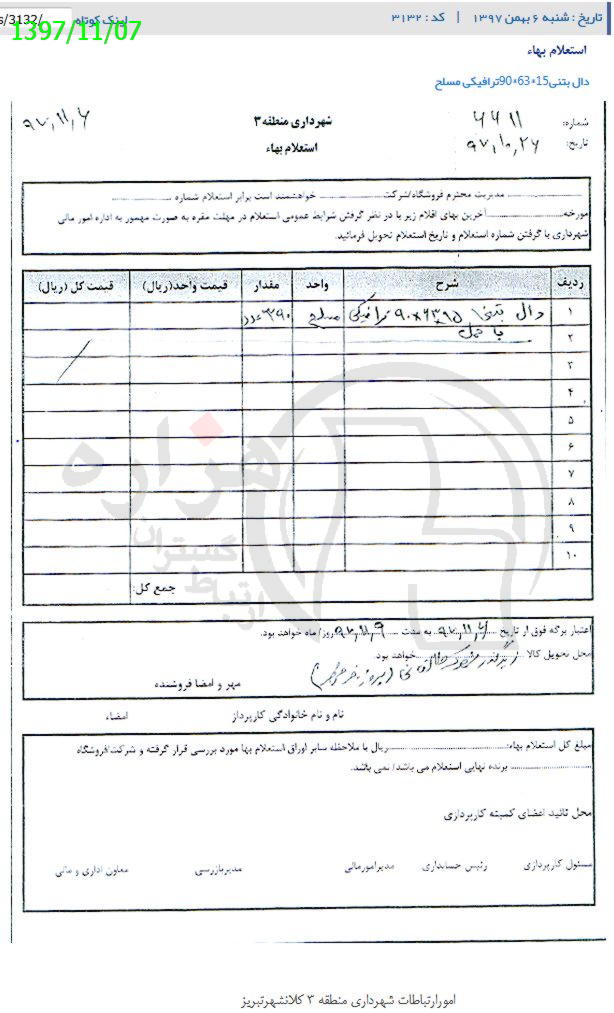 تاریخ : شنبه ۶ بهمن ۱۳۹۷ | کد : ۳۱۳۲
لینک کوتاه
s/3132/
1397/11/07
استعلام بهاء
دال بتنی15*63*90ترافیکی مسلح
شهرداری منطقه ۳
استعلام بهاء
شماره: ۶۶۱۱
تاریخ: ۹۷,۱۰,۲۶
۹۷,۱۱,۶
مدیریت محترم فروشگاه/شرکت خواهشمند است برابر استعلام شماره
مورخه آخرین بهای اقلام زیر با در نظر گرفتن شرایط عمومی استعلام در مهلت مقرره به صورت مهمور به اداره امور مالی
شهرداری با گرفتن شماره استعلام و تاریخ استعلام تحویل فرمائید.
ردیف شرح واحد مقدار قیمت واحد(ریال) قیمت کل (ریال)
۱ دال بتنی ۹۰×۶۳×۱۵ ترافیکی مسلح عدد
۲ با حمل
۳
۴
۵
۶
۷
۸
۹
۱۰
جمع کل:
هزاره
گستران
ارتباط
اعتبار برگه فوق از تاریخ ۹۷,۱۱,۶ به مدت ۹۷,۱۱,۹ روز/ ماه خواهد بود.
محل تحویل کالا خواهد بود
مهر و امضا فروشنده
نام و نام خانوادگی کارپرداز امضاء
مبلغ کل استعلام بهاء: ریال با ملاحظه سایر اوراق استعلام بها مورد بررسی قرار گرفته و شرکت/فروشگاه
برنده نهایی استعلام می باشد/ نمی باشد.
محل تائید اعضای کمیته کارپردازی
مسئول کارپردازی رئیس حسابداری مدیرامورمالی مدیربازرسی معاون اداری و مالی
امورارتباطات شهرداری منطقه ۳ کلانشهرتبریز